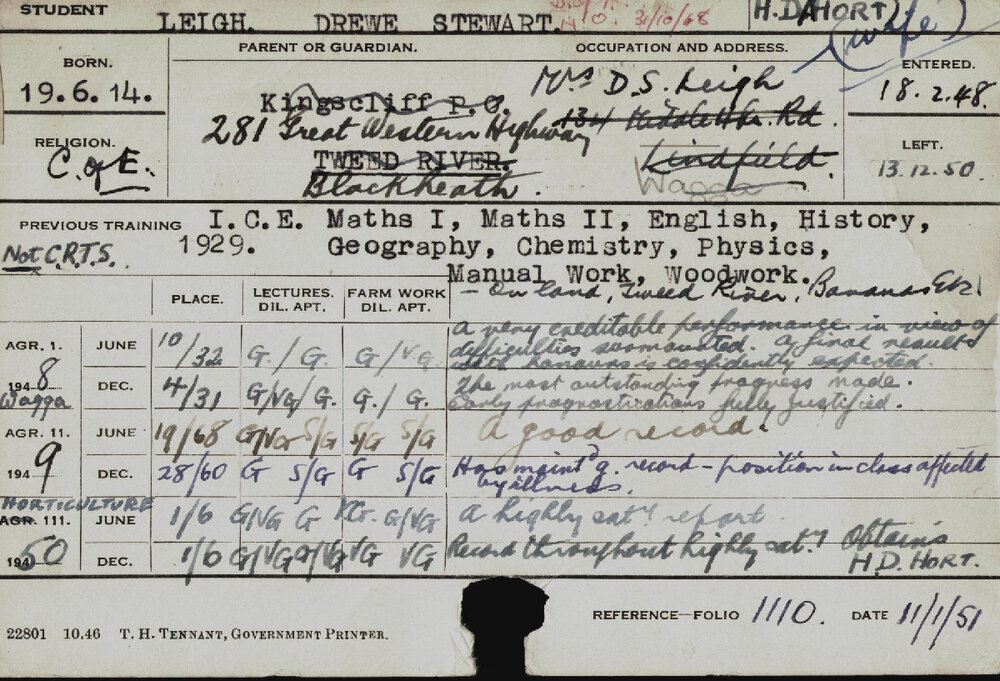 STUDENT LEIGH. DREWE STEWART. 31/10/68 H.D.(HORT)
(wife)
PARENT OR GUARDIAN. OCCUPATION AND ADDRESS.
BORN. ENTERED.
19.6.14. Kingscliff P.O. Mrs D.S. Leigh 18.2.48.
281 Great Western Highway 134 Middle Hbr. Rd.
RELIGION. LEFT.
C. of E. TWEED RIVER. Lindfield. 13.12.50.
Blackheath. Wagga
PREVIOUS TRAINING I.C.E. Maths I, Maths II, English, History,
Not C.R.T.S. 1929. Geography, Chemistry, Physics,
Manual Work, Woodwork.
- On land, Tweed River, Bananas Etc.
PLACE. LECTURES. FARM WORK
DIL. APT. DIL. APT.
AGR. 1. JUNE 10/32 G./G. G/VG A very creditable performance in view of
difficulties surmounted. A final result
with honours is confidently expected.
1948 DEC. 4/31 G/VG/G. G./G. The most outstanding progress made.
Wagga Early prognostications fully justified.
AGR. 11. JUNE 19/68 G/VG S/G S/G S/G A good record.
1949 DEC. 28/60 G S/G G S/G Has maintd g. record - position in class affected
by illness.
HORTICULTURE
AGR. 111. JUNE 1/6 G/VG G VG. G/VG A highly saty report
1950 DEC. 1/6 G/VG G/VG VG VG Record throughout highly saty Obtains
H.D. HORT.
REFERENCE—FOLIO 1110. DATE 11/1/51
22801 10.46 T. H. TENNANT, GOVERNMENT PRINTER.